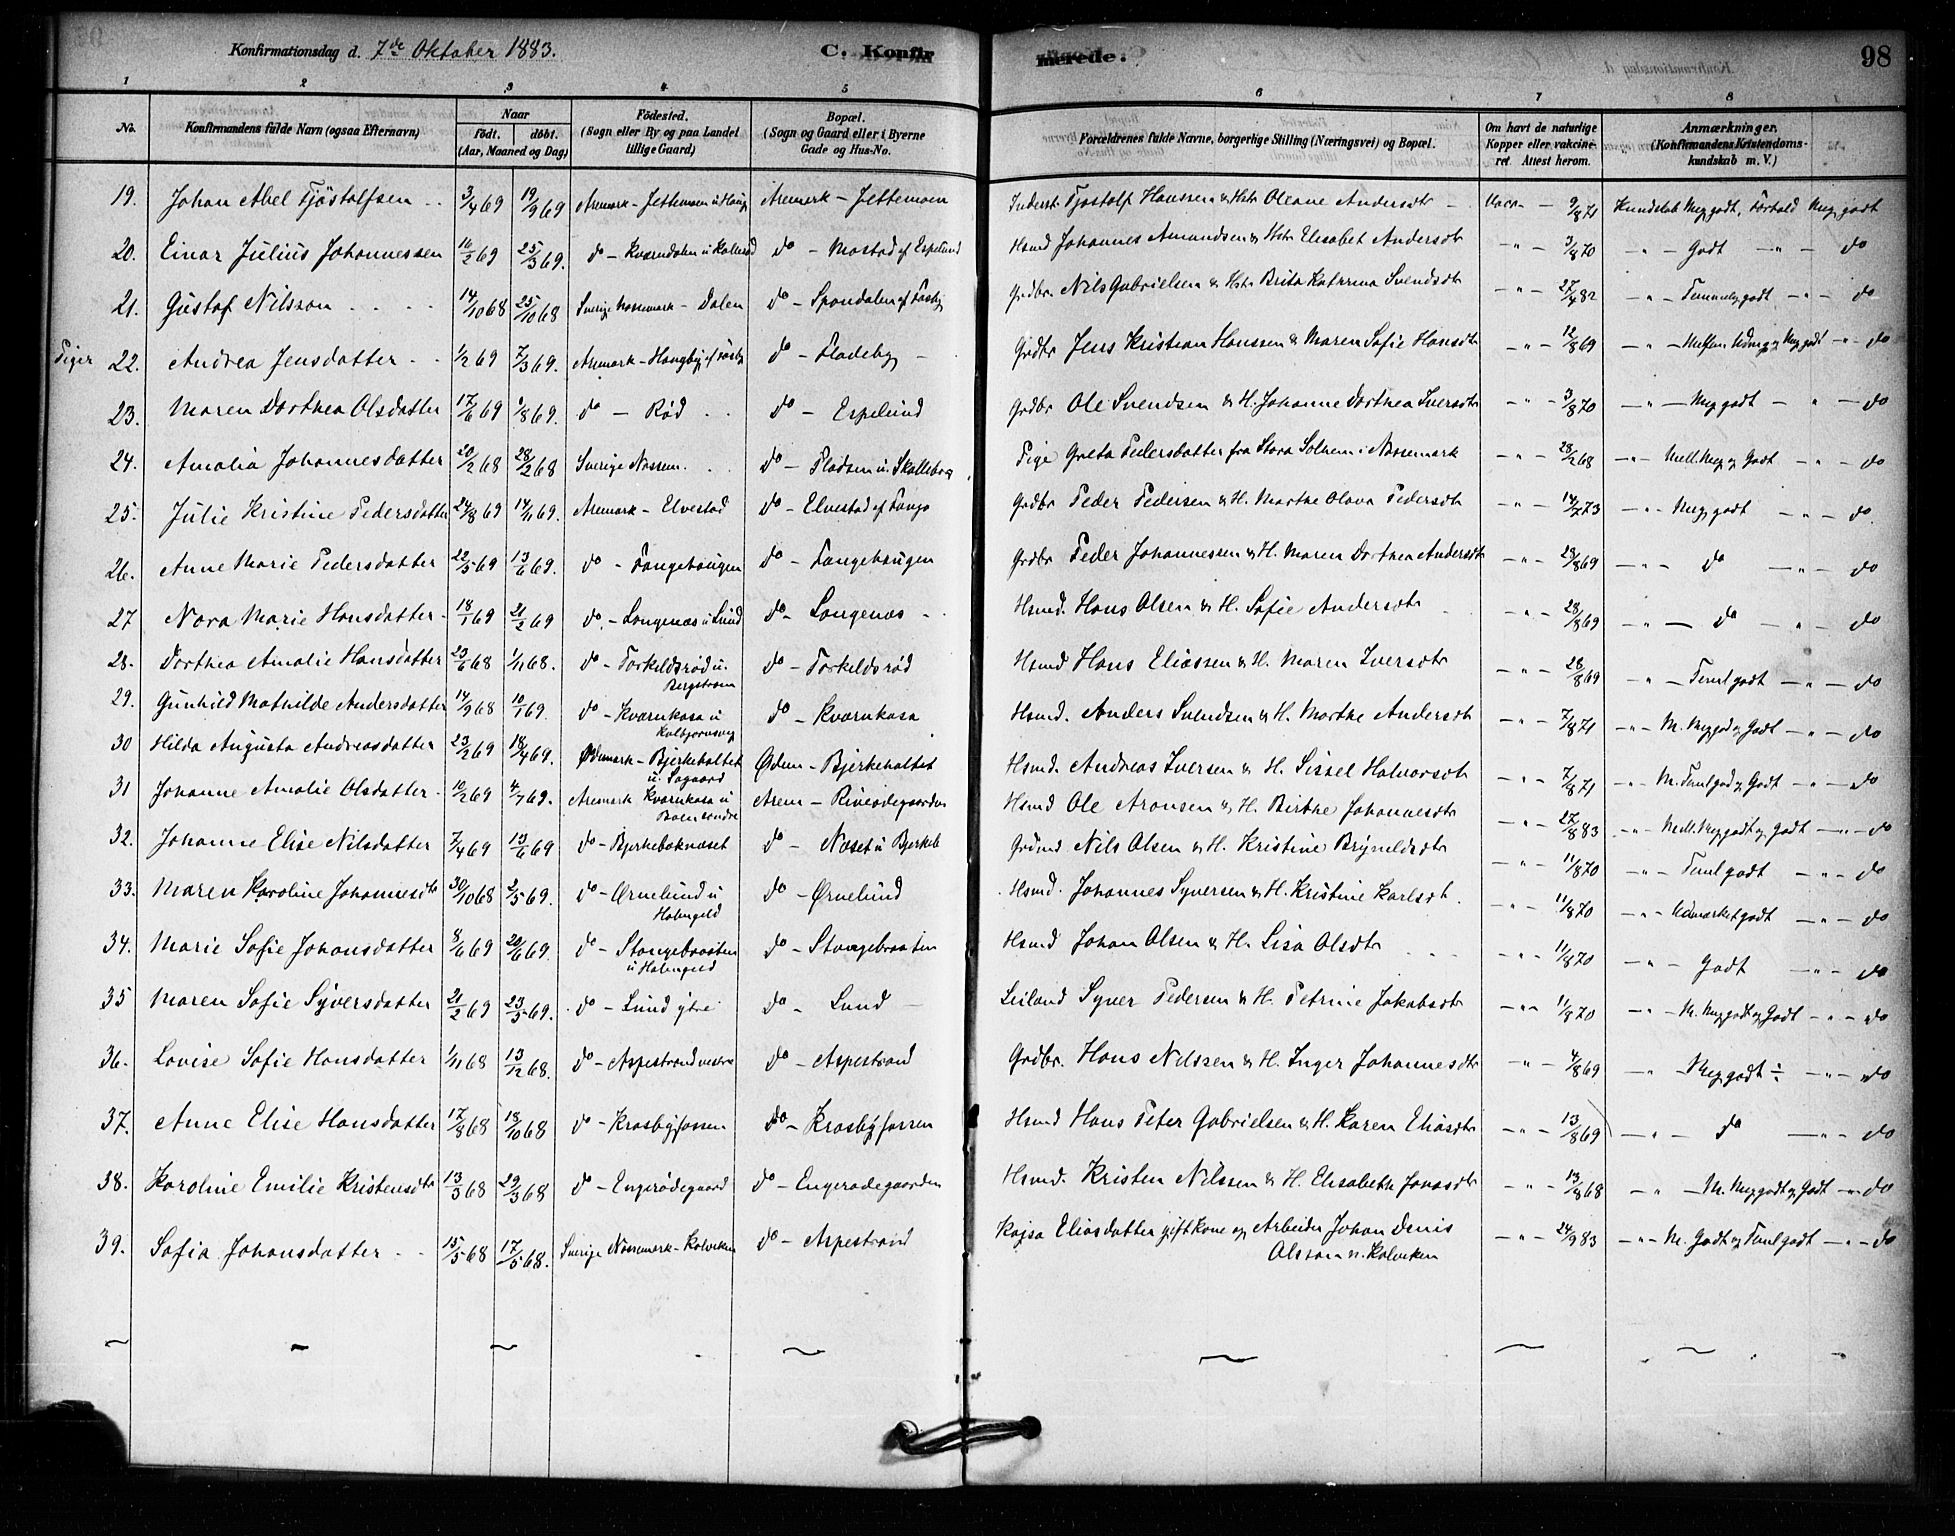 Konfirmationsdag d. 7de Oktober 1883. C. Konfir merede. 98
1 2 3 4 5 6 7 8
No. Konfirmandens fulde Navn (ogsaa Efternavn) Naar født. døbt. (Aar, Maaned og Dag) Fødested. (Sogn eller By og paa Landet tillige Gaard) Bopæl. (Sogn og Gaard eller i Byerne Gade og Hus-No. Forældrenes fulde Navne, borgerlige Stilling (Næringsvei) og Bopæl. Om havt de naturlige Kopper eller vakcineret. Attest herom. Anmærkninger. (Konfirmandens Kristendomskundskab m. V.)
19. Johan Abel Tjøstolfsen 3/4 69 19/9 69 Aremark - Jettemoen u Aremark - Jettemoen Inderst. Tjøstolf Hanssen & Hstr Oleane Andersdtr Vacc. 9/8 71 Kundskab Meg. godt, Forhold Meg. godt
20. Einar Julius Johannessen 16/2 69 25/3 69. do - Kværndalen u Kollerød do - Mostad af Espelund Hsmd Johannes Amundsen & Hstr Elisabet Andersdtr -"- 3/8 70 -"- Godt -"- do
21. Gustaf Nilsson 14/10 68 25/10 68 Sverige Nossemark - Dalen do - Spondalen af Fosby Grdbr. Nils Gabrielsen & Hstr Brita Katrina Svendsdtr -"- 27/4 82 -"- Temmelig godt -"- do
Piger 22. Andrea Jensdatter 1/2 69 7/3 69. Aremark - Haugbyg af Fosby do - Fladeby Grdbr Jens Kristian Hanssen & Maren Sofie Hansdtr -"- 12/8 69 -"- Mellem Udm. og Meg. godt -"- do
23. Maren Dorthea Olsdatter 17/6 69 1/8 69. do - Rød do - Espelund Grdbr Ole Svendsen & H. Johanne Dorthea Iversdtr -"- 3/8 70 -"- Meg. godt -"- do
24. Amalia Johannesdatter 20/2 68 28/2 68 Sverige Nossem. do - Flaasen u. Skolleborg Pige Greta Pedersdatter fra Stora Solhem i Nossemark -"- 28/2 68 -"- Mell. Meg. og Godt -"- do
25. Julie Kristine Pedersdatter 24/8 69 14/11 69. Aremark - Elvestad do - Elvestad af Tange Grdbr Peder Pedersen & H. Marthe Olava Pedersdtr -"- 14/7 73 -"- Meg. godt -"- do
26. Anne Marie Pedersdatter 22/5 69 13/6 69. do - Tangehaugen do - Tangehaugen Grdbr Peder Johannessen & H. Maren Dorthea Andersdtr -"- 29/8 69 -"- do -"- do
27 Nora Marie Hansdatter 18/1 69 21/2 69 do - Langenæs u Lund do - Langenæs Hsmd. Hans Olsen & H. Sofie Andersdtr -"- 28/8 69 -"- do -"- do
28. Dorthea Amalie Hansdatter 23/6 68 1/11 68. do - Torkildsrød u. Bergstrøm do - Torkildsrød Hsmd Hans Eliassen & H. Maren Iversdtr -"- 28/8 69 -"- Teml godt -"- do
29. Gunhild Mathilde Andersdatter 14/9 68 10/1 69. do - Kværnkasa u Kolbjørnsvig do - Kværnkasa Hsmd. Anders Svendsen & H. Marthe Andersdtr -"- 7/8 71 -"- M. Meg. god og Godt -"- do
30 Hilda Augusta Andreasdatter 23/2 69 18/4 69. Ødemark - Bjerkeholtet u. Sagaard Ødem - Bjerkeholtet Hsmd. Andreas Iversen & H. Sissel Halvorsdtr -"- 7/8 71 -"- M. Teml god og Godt -"- do
31 Johanne Amalie Olsdatter 10/2 69 4/7 69. Aremark Kværnkasa u Bøen søndre Arem - Riveødegaarden Hsmd Ole Aronsen & H. Birthe Johannesdtr -"- 27/8 83 -"- Mell. Meg godt og Godt -"- do
32. Johanne Elise Nilsdatter 7/4 69 13/6 69 do - Bjerkebæknæset do - Næset u Bjerkeb Grdmd Nils Olsen & H. Kristine Brynildsdtr -"- 11/8 70 -"- Teml godt -"- do
33. Maren Karoline Johannesdtr 30/10 68 2/5 69. do - Ørnelund u Holmgeld do - Ørnelund Hsmd. Johannes Syversen & H. Kristine Karlsdt. -"- 11/8 70 -"- Udmærket godt -"- do
34. Marie Sofie Johansdatter 8/6 69 20/6 69. do - Stangebraaten u Holmgeld do - Stangebraaten Hsmd Johan Olsen & H. Lisa Olsdtr -"- 11/8 70 -"- Godt -"- do
35 Maren Sofie Syversdatter 21/2 69 23/5 69. do - Lund ytre do - Lund Leiland Syver Pedersen & H. Petrine Jakobsdtr -"- 11/8 70 -"- M. Meg godt og Godt -"- do
36. Lovise Sofie Hansdatter 1/11 68 13/12 68. do - Aspestrand vestre do - Aspestrand Grdbr. Hans Nilssen & H. Inger Johannesdtr -"- 4/8 69 -"- Meg godt ÷ -"- do
37. Anne Elise Hansdatter 17/8 68 18/10 68 do - Krosbyfossen do - Krosbyfossen Hsmd Hans Peter Gabrielsen & H. Karen Eliasdtr -"- 13/8 69 -"- do -"- do
38. Karoline Emilie Kristensdtr 13/3 68 29/3 68 do - Engerødegaard do - Engerødegaarden Hsmd. Kristen Nilssen & H. Elisabeth Jonasdtr -"- 13/8 68 -"- M. Meg godt og Godt -"- do
39. Sofia Johansdatter 15/5 68 17/5 68. Sverige Nossemark - Kolviken do - Aspestrand Kajsa Eliasdatter gift Kone og Arbeider Johan Denis Olsson n. Kolviken -"- 24/9 83 -"- M. Godt og Teml godt -"- do